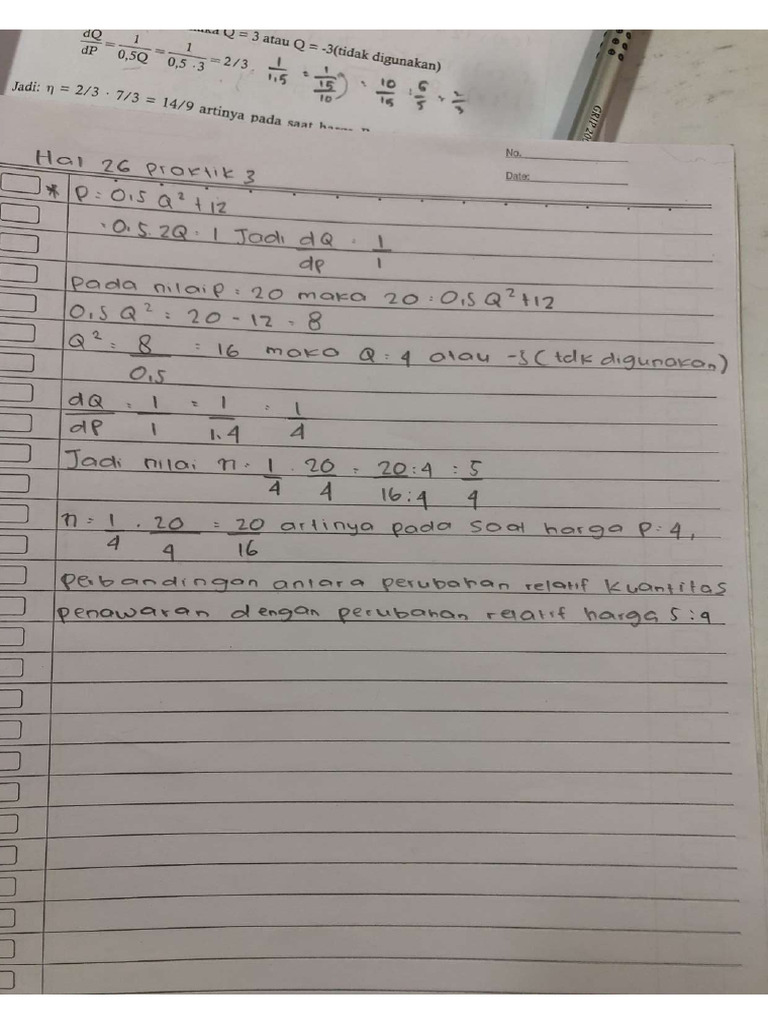 Q = 3 atau Q = -3(tidak digunakan)
dQ/dP = 1/0,5Q = 1/0,5 · 3 = 2/3. 1/1,5 = 1/15/10) = 10/15 : 5/5 = 2/3
Jadi: η = 2/3 · 7/3 = 14/9 artinya pada saat
GRIP 20
No.
Date:
Hal 26 Praktik 3
* P = 0,5 Q² + 12
= 0,5. 2Q = 1 Jadi dQ/dp = 1/1
pada nilai p = 20 maka 20 = 0,5 Q² + 12
0,5 Q² = 20 - 12 = 8
Q² = 8/0,5 = 16 maka Q = 4 atau -5 (tdk digunakan)
dQ/dP = 1/1 = 1/1.4 = 1/4
Jadi nilai n = 1/4 . 20/4 = 20:4/16:4 = 5/4
n = 1/4 . 20/4 = 20/16 artinya pada saat harga p = 4,
perbandingan antara perubahan relatif kuantitas
penawaran dengan perubahan relatif harga 5:4